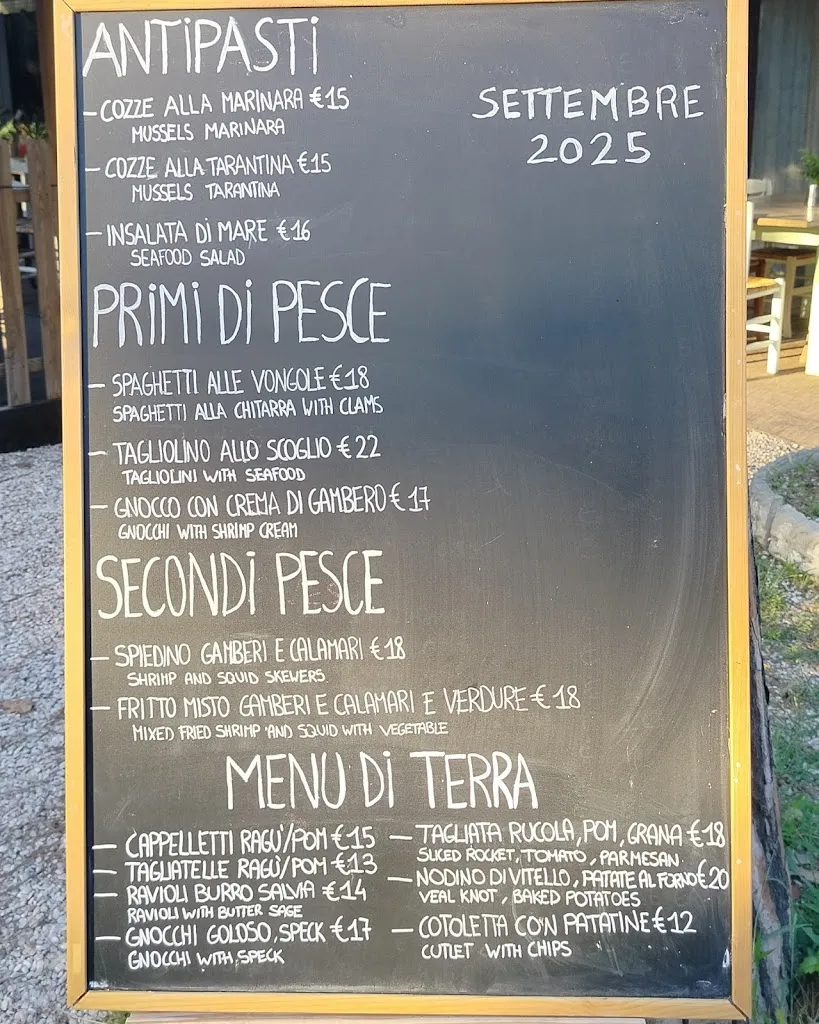 ANTIPASTI
SETTEMBRE
2025
- COZZE ALLA MARINARA €15
MUSSELS MARINARA
- COZZE ALLA TARANTINA €15
MUSSELS TARANTINA
- INSALATA DI MARE €16
SEAFOOD SALAD
PRIMI DI PESCE
- SPAGHETTI ALLE VONGOLE €18
SPAGHETTI ALLA CHITARRA WITH CLAMS
- TAGLIOLINO ALLO SCOGLIO €22
TAGLIOLINI WITH SEAFOOD
- GNOCCO CON CREMA DI GAMBERO €17
GNOCCHI WITH SHRIMP CREAM
SECONDI PESCE
- SPIEDINO GAMBERI E CALAMARI €18
SHRIMP AND SQUID SKEWERS
- FRITTO MISTO GAMBERI E CALAMARI E VERDURE €18
MIXED FRIED SHRIMP AND SQUID WITH VEGETABLE
MENU DI TERRA
- CAPPELLETTI RAGÙ/POM €15
- TAGLIATELLE RAGÙ/POM €13
- RAVIOLI BURRO SALVIA €14
RAVIOLI WITH BUTTER SAGE
- GNOCCHI GOLOSO, SPECK €17
GNOCCHI WITH SPECK
- TAGLIATA RUCOLA, POM, GRANA €18
SLICED ROCKET, TOMATO, PARMESAN
- NODINO DI VITELLO, PATATE AL FORNO €20
VEAL KNOT, BAKED POTATOES
- COTOLETTA CON PATATINE €12
CUTLET WITH CHIPS